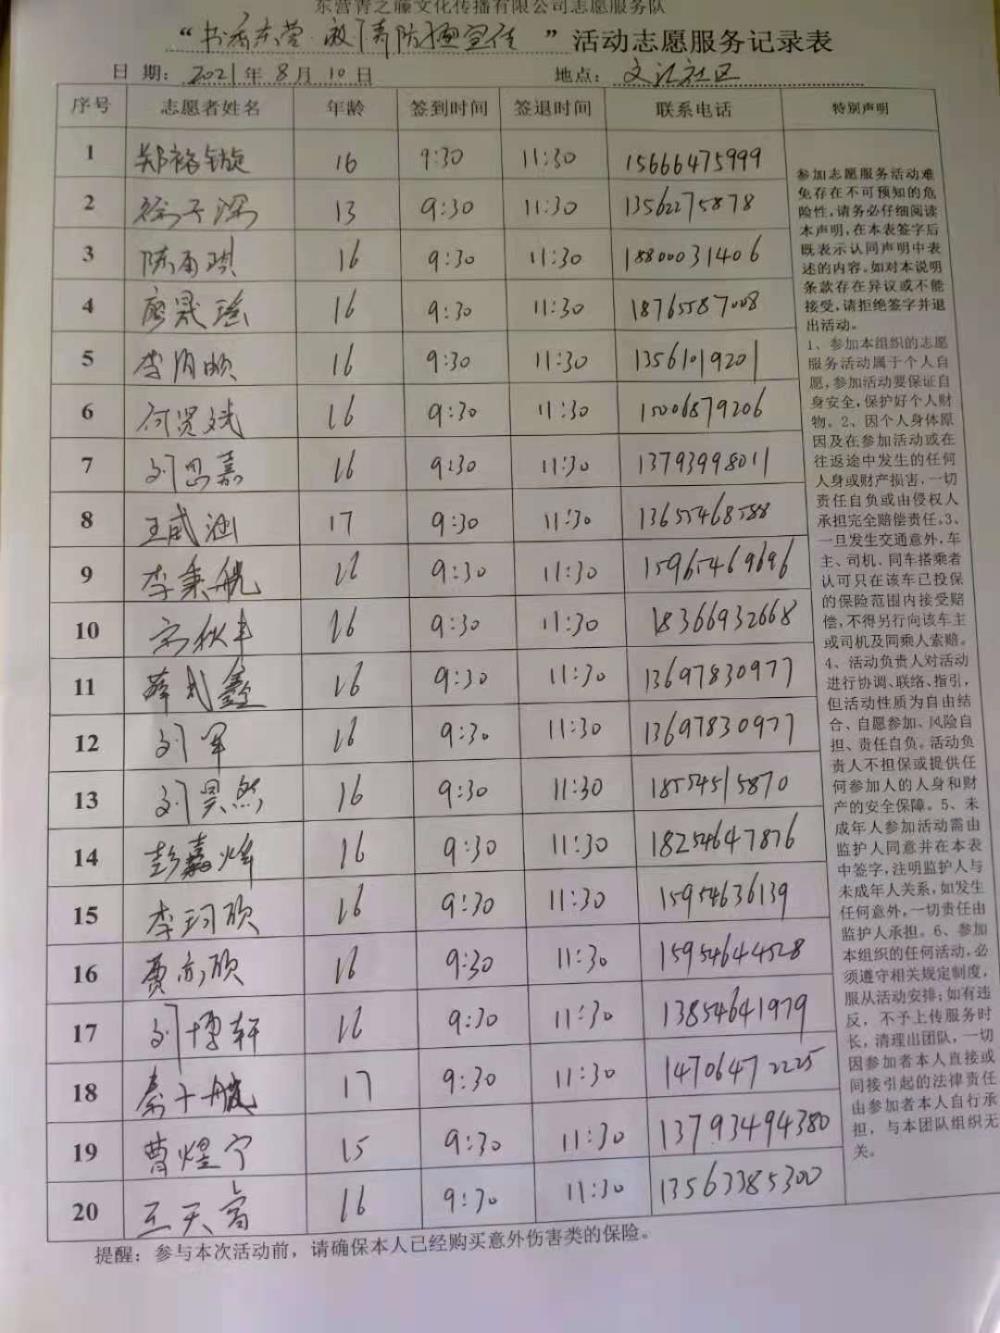 东营青之藤文化传播有限公司志愿服务队
“书香东营·疫情防控宣传”活动志愿服务记录表
日 期: 2021年8月10日 地点: 文汇社区
序号 志愿者姓名 年龄 签到时间 签退时间 联系电话 特别声明
1 郑裕镟 16 9:30 11:30 15666475999
2 徐子深 13 9:30 11:30 13562275878
3 陈雨琪 16 9:30 11:30 18800031406
4 唐晟瑶 16 9:30 11:30 18765587008
5 李月颖 16 9:30 11:30 13561019201
6 何贤斌 16 9:30 11:30 15006879206
7 刘思嘉 16 9:30 11:30 13793998011
8 王威涵 17 9:30 11:30 13655468588
9 李秉航 16 9:30 11:30 15965469696
10 高秋丰 16 9:30 11:30 18366932668
11 薛武鑫 16 9:30 11:30 13697830977
12 刘军 16 9:30 11:30 13697830977
13 刘昊然 16 9:30 11:30 18554515870
14 彭嘉烽 16 9:30 11:30 18254647876
15 李珂欣 16 9:30 11:30 15954636139
16 贾亦硕 16 9:30 11:30 15954644528
17 刘博轩 16 9:30 11:30 13854641979
18 秦子航 17 9:30 11:30 14706472225
19 曹煜宁 15 9:30 11:30 13793494380
20 王天高 16 9:30 11:30 13563385300
参加志愿服务活动难
免存在不可预知的危
险性,请务必仔细阅读
本声明,在本表签字后
既表示认同声明中表
述的内容。如对本说明
条款存在异议或不能
接受,请拒绝签字并退
出活动。
1、参加本组织的志愿
服务活动属于个人自
愿,参加活动要保证自
身安全,保护好个人财
物。2、因个人身体原
因及在参加活动或在
往返途中发生的任何
人身或财产损害,一切
责任自负或由侵权人
承担完全赔偿责任。3、
一旦发生交通意外,车
主、司机、同车搭乘者
认可只在该车已投保
的保险范围内接受赔
偿,不得另行向该车主
或司机及同乘人索赔。
4、活动负责人对活动
进行协调、联络、指引,
但活动性质为自由结
合、自愿参加、风险自
担、责任自负。活动负
责人不担保或提供任
何参加人的人身和财
产的安全保障。5、未
成年人参加活动需由
监护人同意并在本表
中签字,注明监护人与
未成年人关系,如发生
任何意外,一切责任由
监护人承担。6、参加
本组织的任何活动,必
须遵守相关规定制度,
服从活动安排;如有违
反,不予上传服务时
长,清理出团队,一切
因参加者本人直接或
间接引起的法律责任
由参加者本人自行承
担,与本团队组织无
关。
提醒:参与本次活动前,请确保本人已经购买意外伤害类的保险。